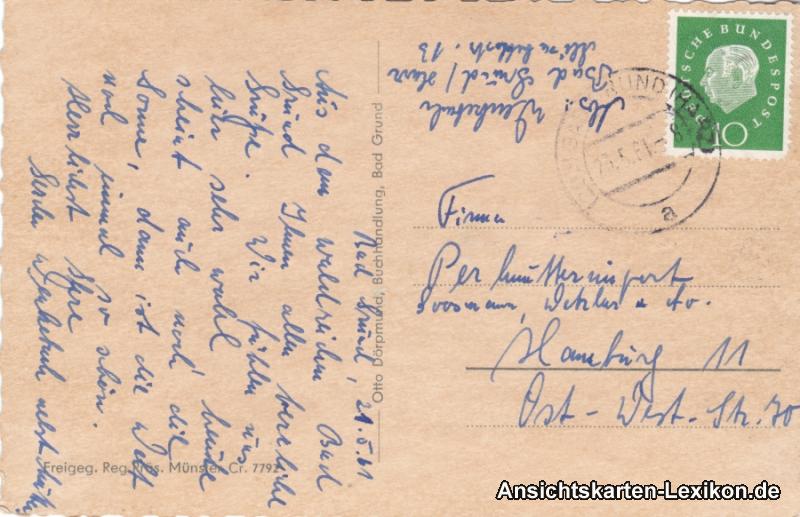 Bad Grund, 21.5.61
Aus dem waldreichen Bad
Grund Ihnen allen herzliche
Grüße. Wir fühlen uns
hier sehr wohl heute
scheint auch noch die
Sonne, dann ist die Welt
noch einmal so schön.
Herzlichst Ihre
nebst
Abs.
Bad Grund / Harz
13
Otto Dörpmund, Buchhandlung, Bad Grund
Freigeg. Reg. Präs. Münster Cr. 7792
DEUTSCHE BUNDESPOST
10
GRUND (HARZ)
21.5.61
a
Firma
Perlmutterimport
Hamburg 11
Ost-West-Str. 70
Ansichtskarten-Lexikon.de